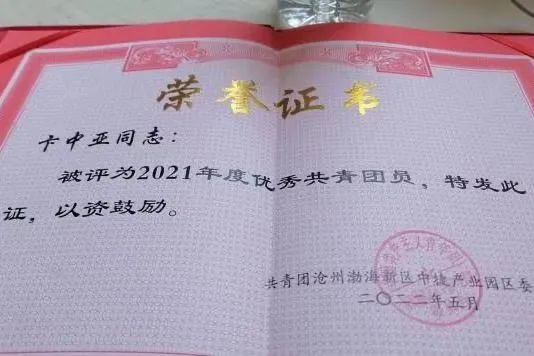 荣誉证书
卡中亚同志：
被评为2021年度优秀共青团员，特发此
证，以资鼓励。
共青团沧州渤海新区中捷产业园区委
二〇二二年五月